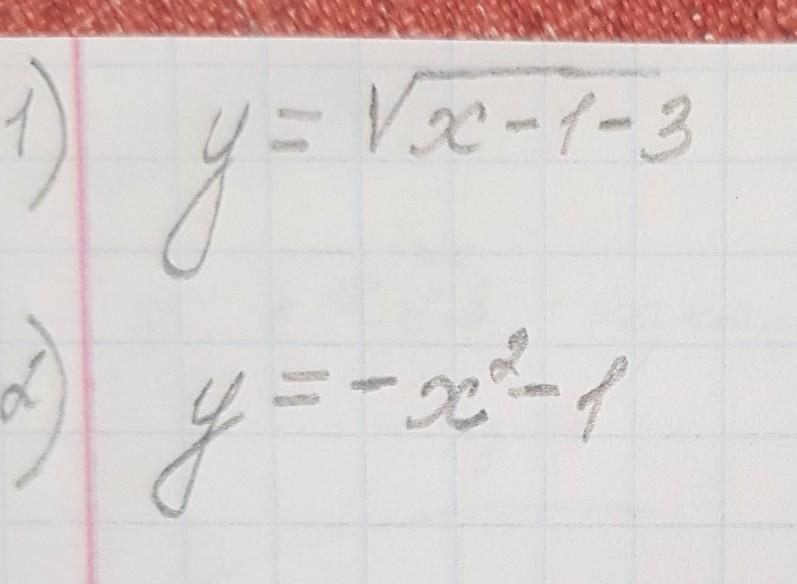 1) y = √x - 1 - 3
2) y = - x² - 1